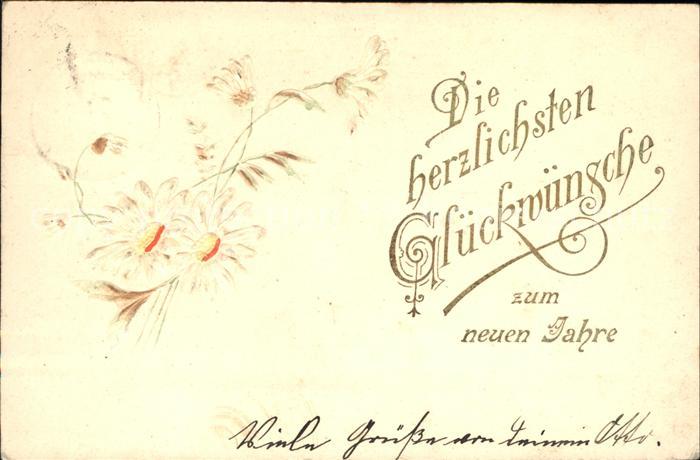 Die
herzlichsten
Glückwünsche
zum
neuen Jahre
Viele Grüße von deinem Otto.